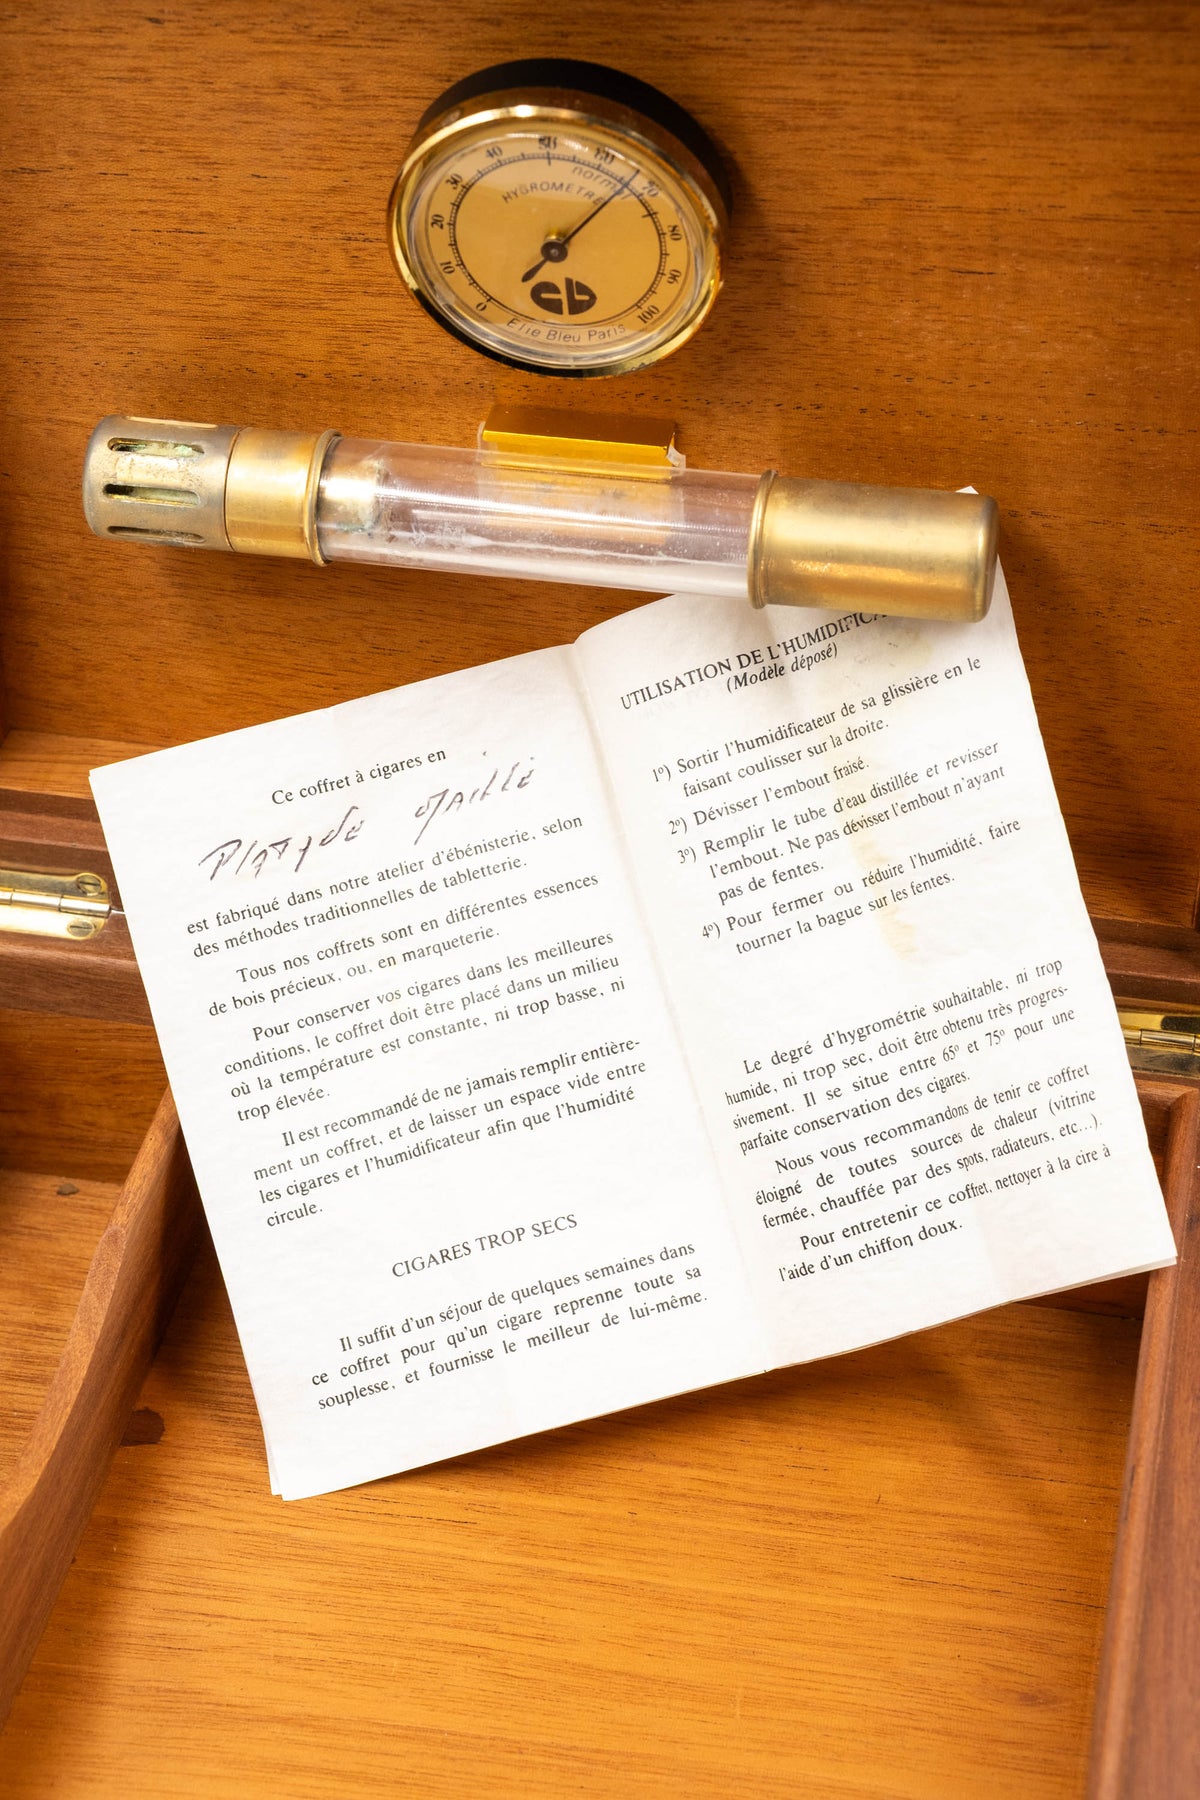 0 10 20 30 40 50 60 70 80 90 100
normal
HYGROMETRE
eb
Elie Bleu Paris
Ce coffret à cigares en
est fabriqué dans notre atelier d'ébénisterie, selon
des méthodes traditionnelles de tabletterie.
Tous nos coffrets sont en différentes essences
de bois précieux, ou, en marqueterie.
Pour conserver vos cigares dans les meilleures
conditions, le coffret doit être placé dans un milieu
où la température est constante, ni trop basse, ni
trop élevée.
Il est recommandé de ne jamais remplir entière-
ment un coffret, et de laisser un espace vide entre
les cigares et l'humidificateur afin que l'humidité
circule.
CIGARES TROP SECS
Il suffit d'un séjour de quelques semaines dans
ce coffret pour qu'un cigare reprenne toute sa
souplesse, et fournisse le meilleur de lui-même.
UTILISATION DE L'HUMIDIFICA
(Modèle déposé)
1º) Sortir l'humidificateur de sa glissière en le
faisant coulisser sur la droite.
2º) Dévisser l'embout fraisé.
3º) Remplir le tube d'eau distillée et revisser
l'embout. Ne pas dévisser l'embout n'ayant
pas de fentes.
4º) Pour fermer ou réduire l'humidité, faire
tourner la bague sur les fentes.
Le degré d'hygrométrie souhaitable, ni trop
humide, ni trop sec, doit être obtenu très progres-
sivement. Il se situe entre 65º et 75º pour une
parfaite conservation des cigares.
Nous vous recommandons de tenir ce coffret
éloigné de toutes sources de chaleur (vitrine
fermée, chauffée par des spots, radiateurs, etc...).
Pour entretenir ce coffret, nettoyer à la cire à
l'aide d'un chiffon doux.